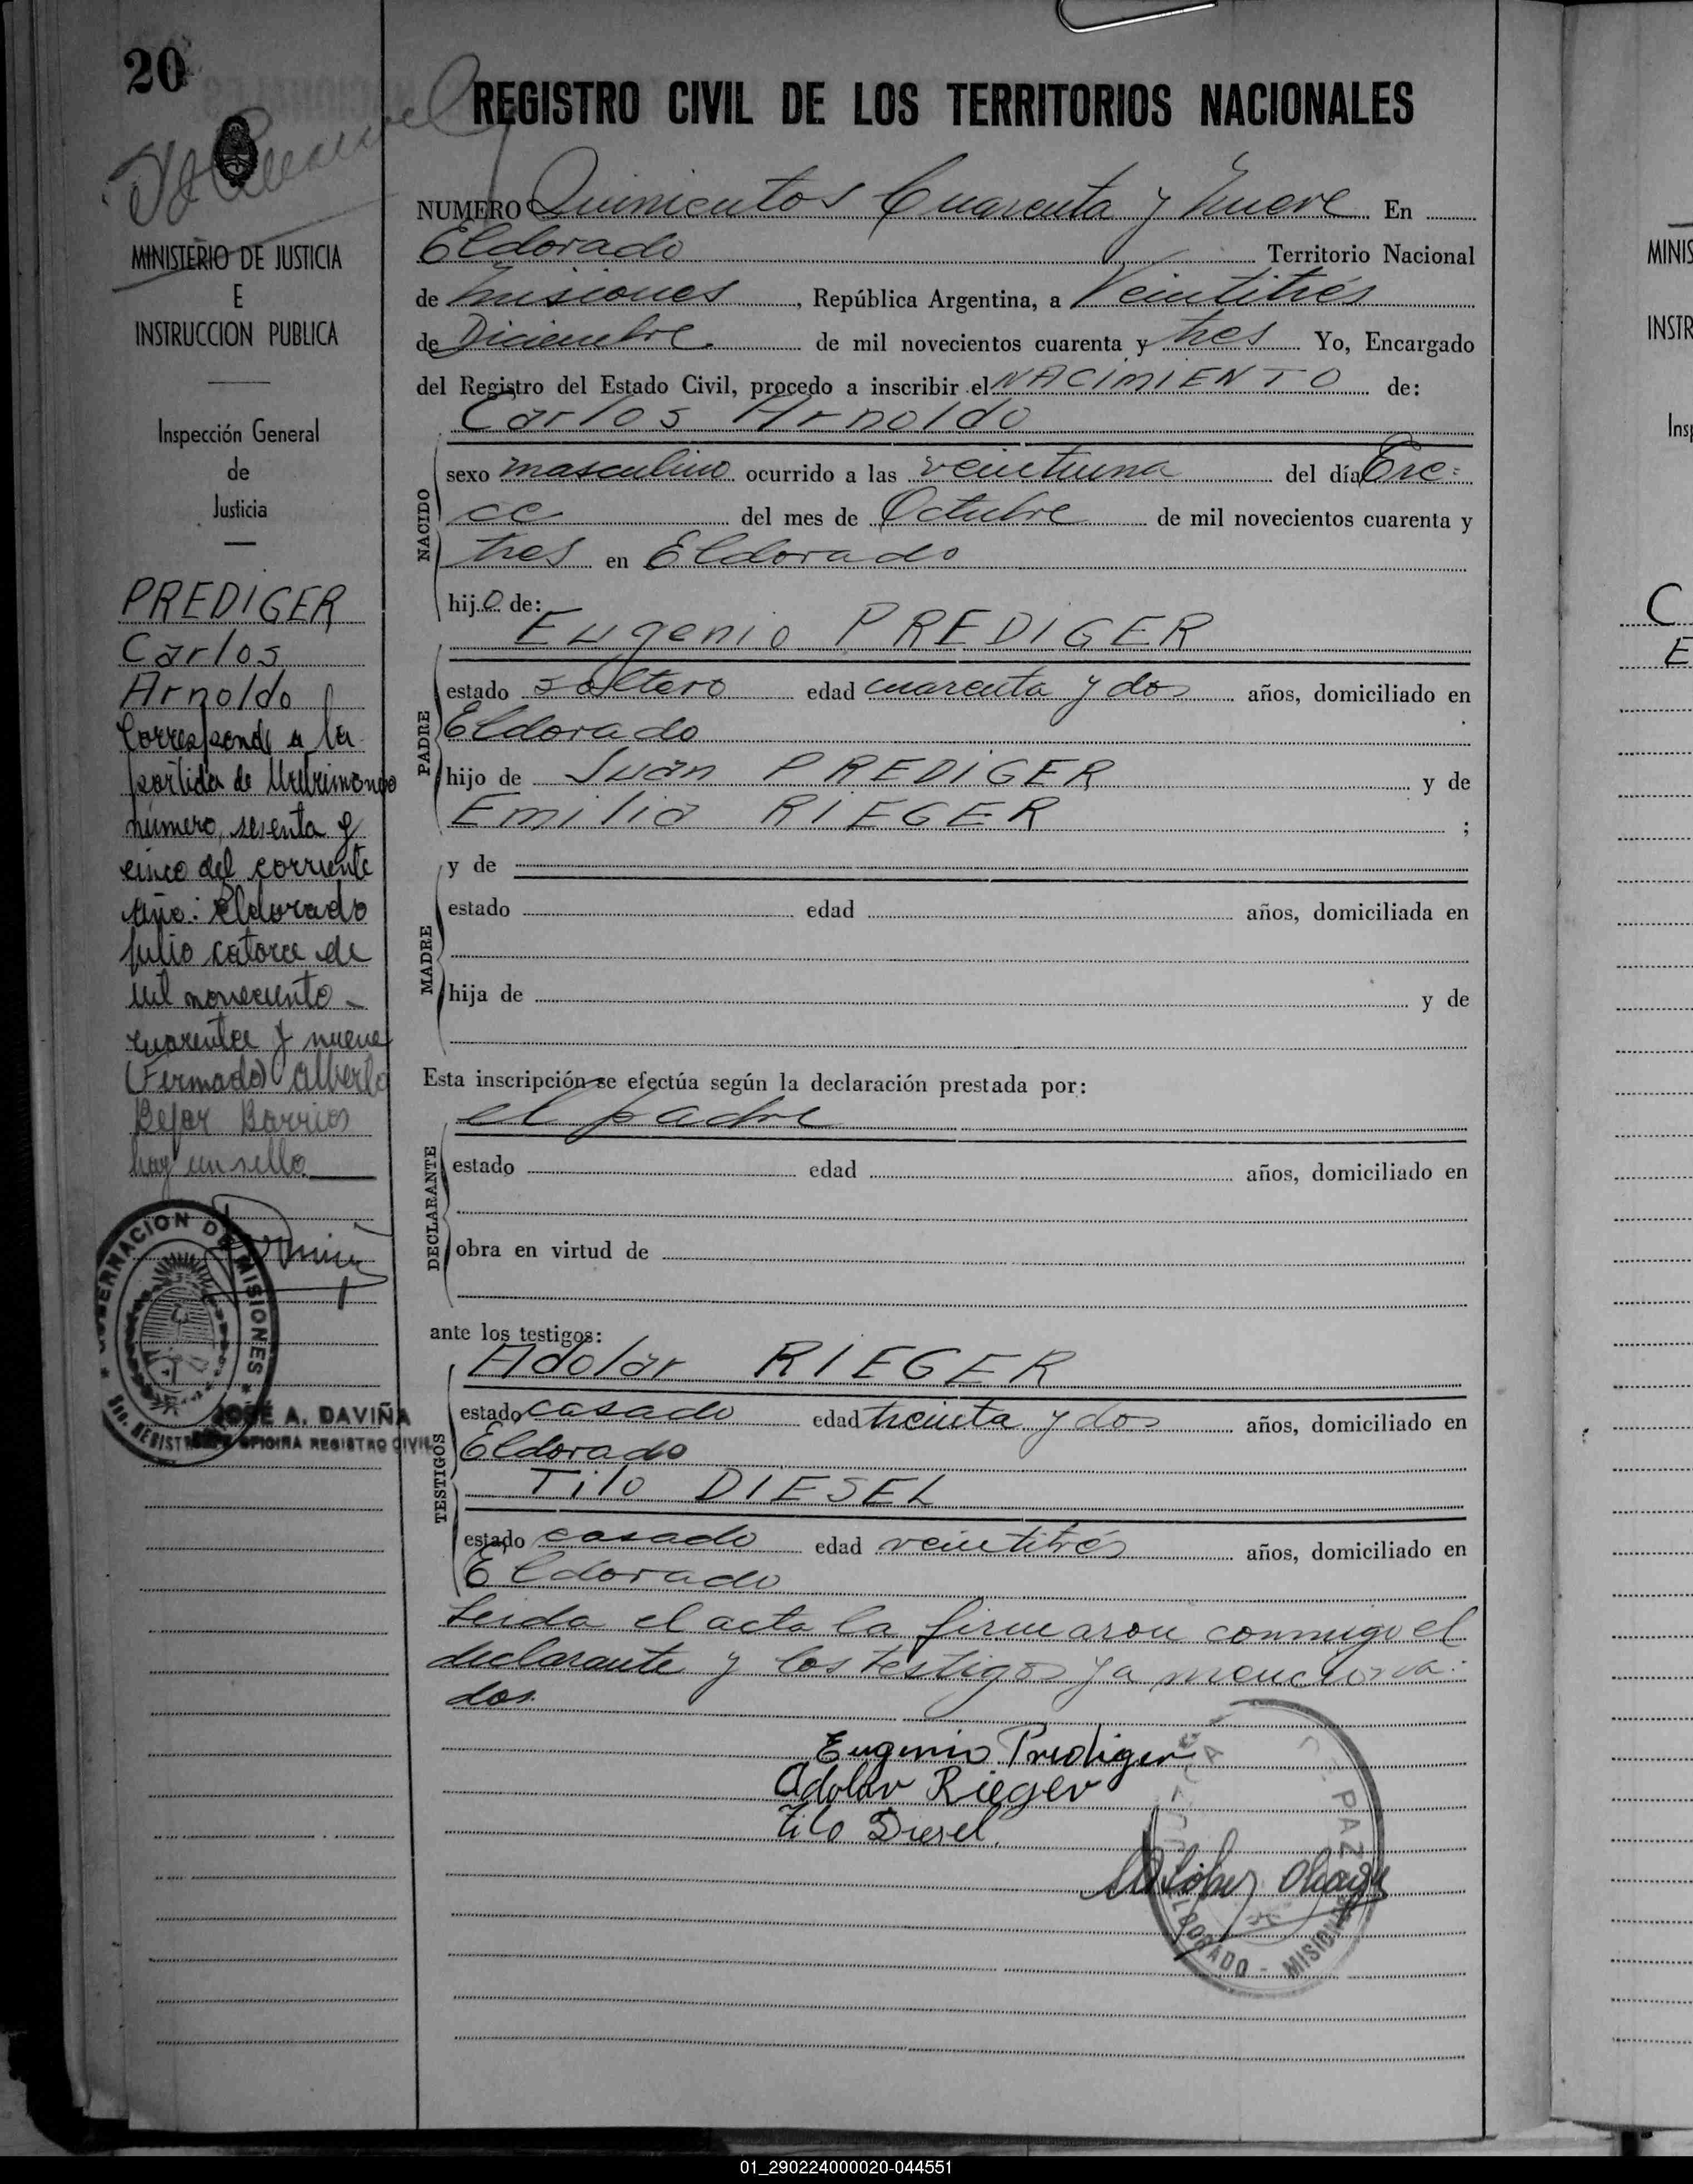 20
REGISTRO CIVIL DE LOS TERRITORIOS NACIONALES
MINISTERIO DE JUSTICIA
E
INSTRUCCION PUBLICA
Inspección General
de
Justicia
PREDIGER
Carlos
Arnoldo
Corresponde a la
partida de Matrimonio
número, sesenta y
cinco del corriente
Año: Eldorado
Julio catorce de
mil noveciento
cuarenta y nueve
(Firmado) Alberto
Bejar Barrios
hay un sello
GOBERNACION DE MISIONES
JOSÉ A. DAVIÑA
OFICINA REGISTRO CIVIL
NUMERO Quinientos Cuarenta y Nueve En
Eldorado Territorio Nacional
de Misiones, República Argentina, a Veintitrés
de Diciembre de mil novecientos cuarenta y tres Yo, Encargado
del Registro del Estado Civil, procedo a inscribir el NACIMIENTO de:
Carlos Arnoldo
NACIDO
sexo masculino ocurrido a las veintiuna del día Tre=
ce del mes de Octubre de mil novecientos cuarenta y
tres en Eldorado
hijo de:
Eugenio PREDIGER
PADRE
estado soltero edad cuarenta y dos años, domiciliado en
Eldorado
hijo de Juan PREDIGER y de
Emilia RIEGER ;
y de
MADRE
estado edad años, domiciliada en
hija de y de
Esta inscripción se efectúa según la declaración prestada por:
el padre
DECLARANTE
estado edad años, domiciliado en
obra en virtud de
ante los testigos:
Adolar RIEGER
TESTIGOS
estado casado edad treinta y dos años, domiciliado en
Eldorado
Tilo DIESEL
estado casado edad veintitrés años, domiciliado en
Eldorado
Leida el acta la firmaron conmigo el
declarante y los testigos ya menciona=
dos.
Eugenio Prediger
Adolar Rieger
Tilo Diesel.
DE PAZ
ELDORADO - MISIONES
01_290224000020-044551